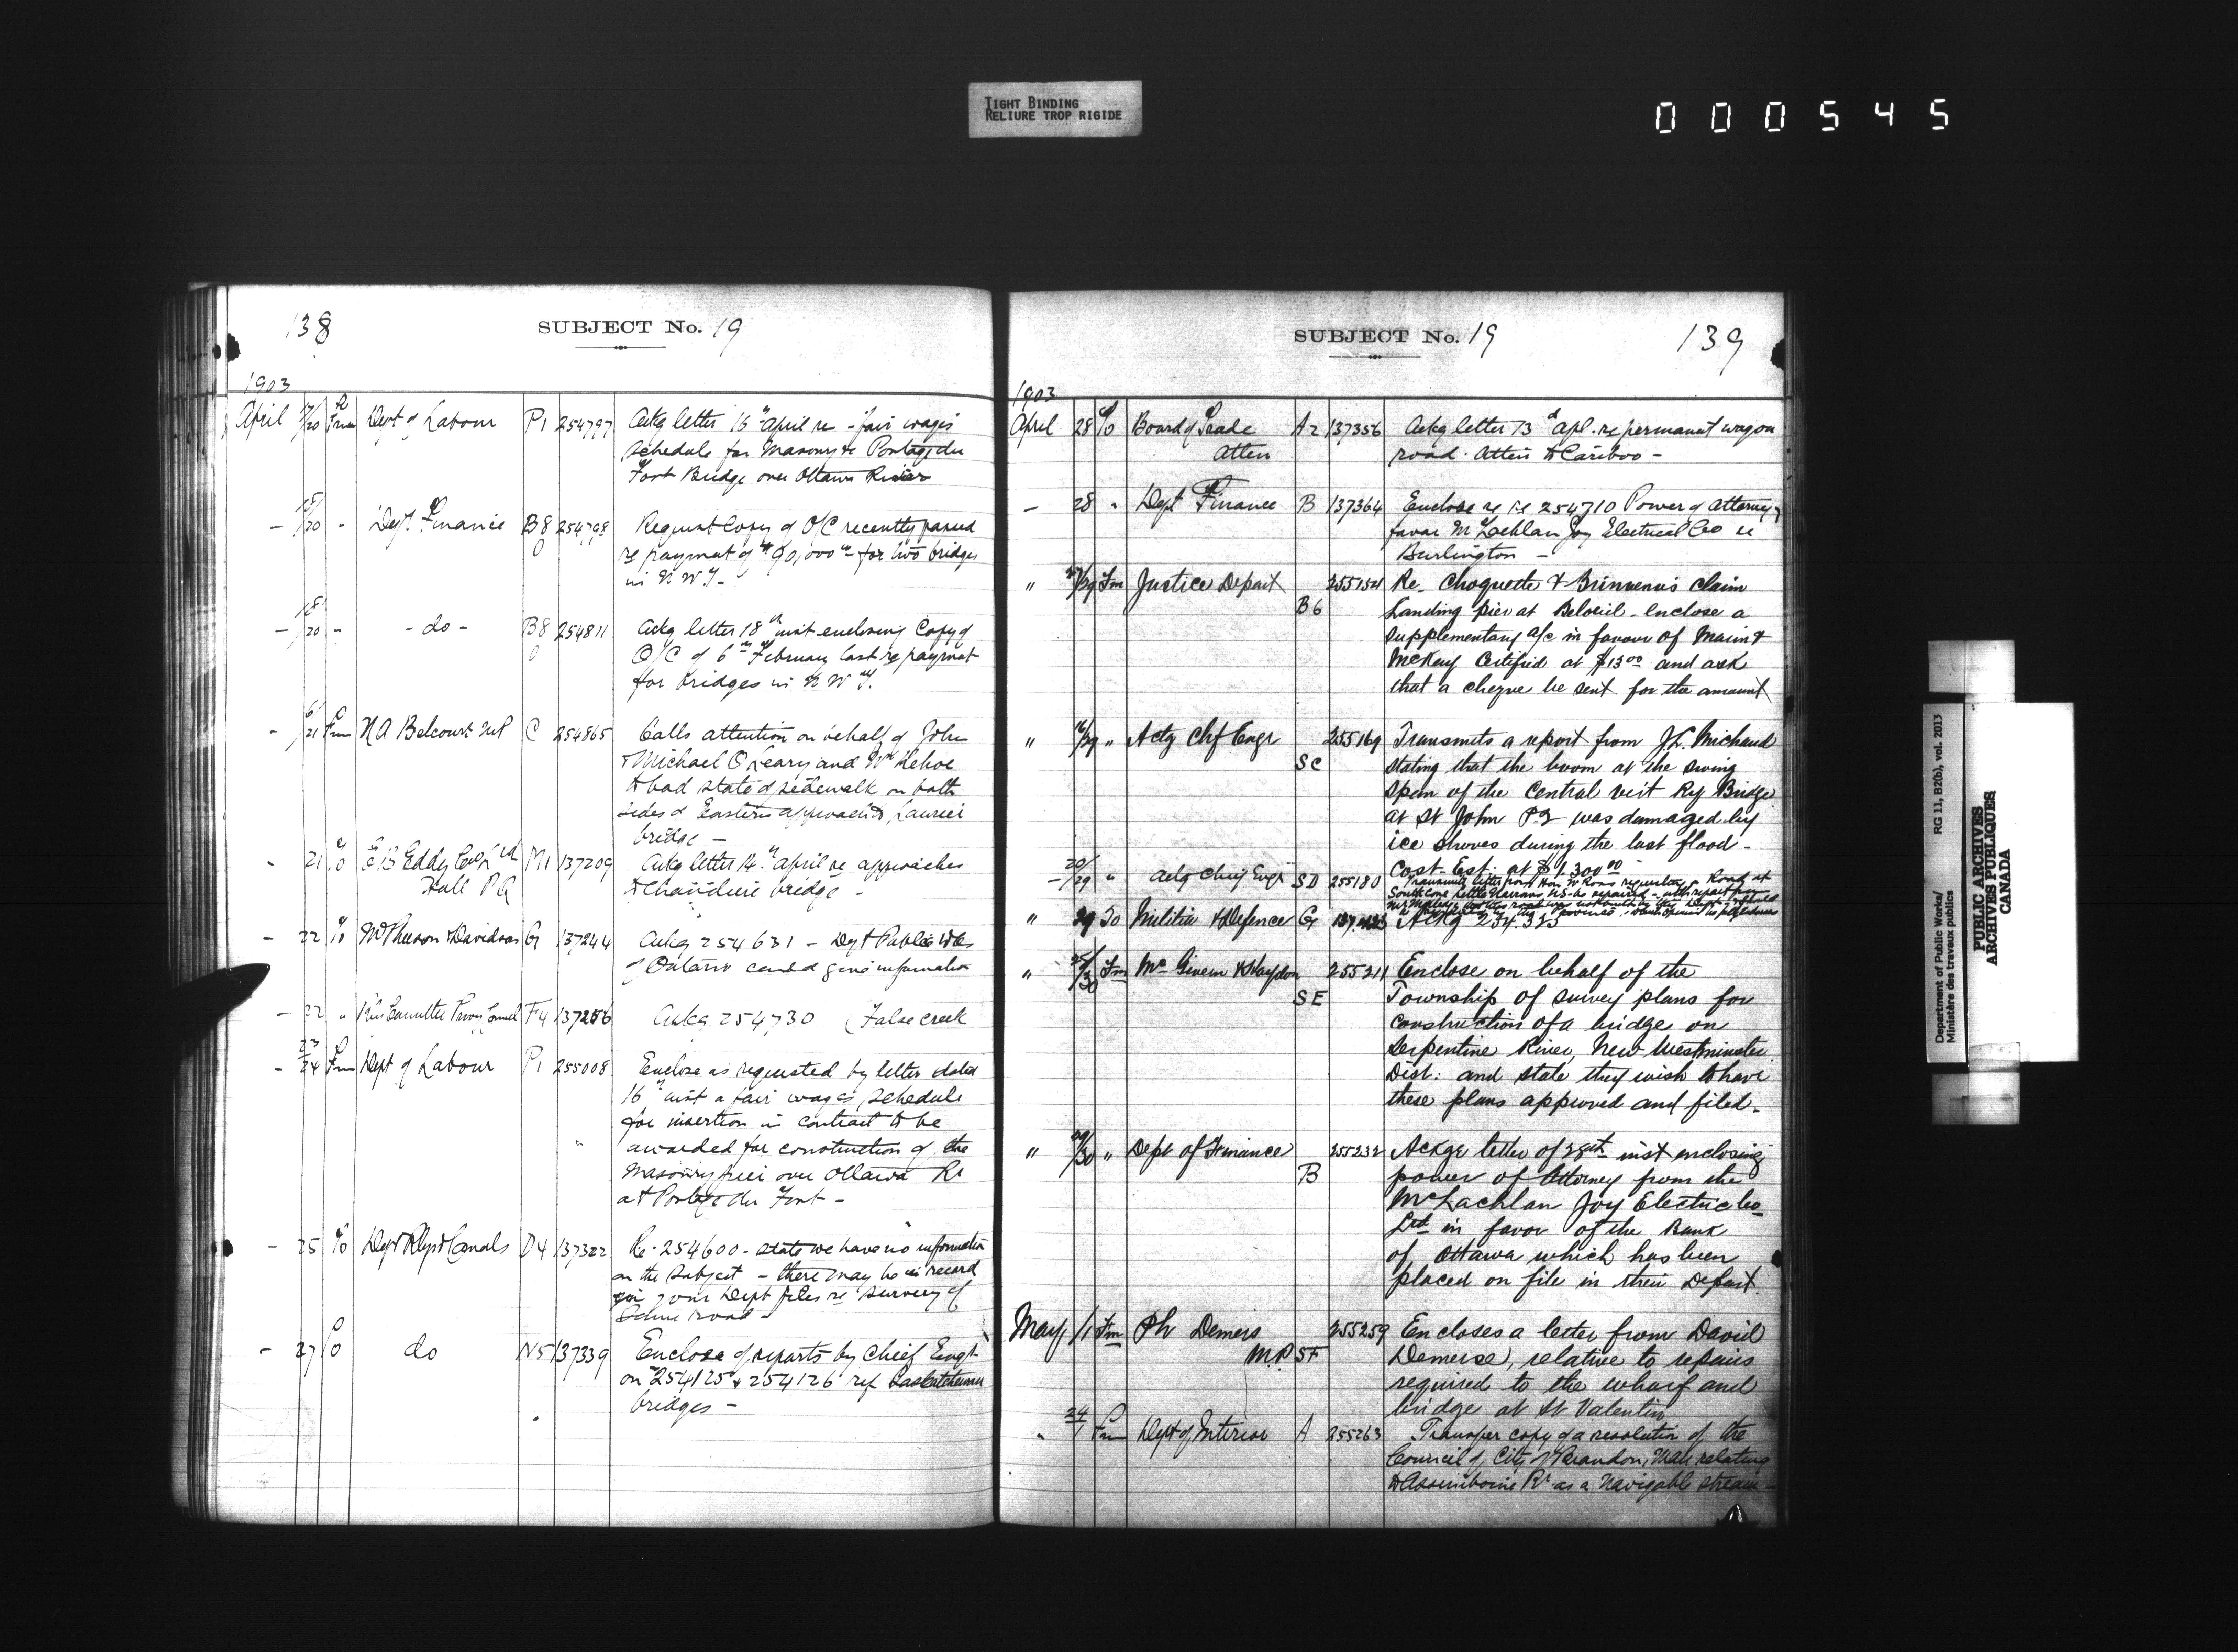 TIGHT BINDING
RELIURE TROP RIGIDE
000545
138
SUBJECT No. 19
1903
April 17/20 Fm Dept of Labour P1 254797 Ackg letter 16th April re fair wages
schedule for masonry to Portage du
Fort Bridge over Ottawa River
- 18/20 " Dept Finance B8 254798 Request Copy of O/C recently passed
re payment of $90,000 00 for two bridges
in N.W.T.
- 18/20 " - do - B8 254811 Ackg letter 18th inst enclosing Copy of
O/C of 6th February last re payment
for bridges in N W T.
- 6/21 Fm N A Belcourt MP C 254865 Calls attention on behalf of John
& Michael O'Leary and Wm Kehoe
to bad state of sidewalk on both
sides of Eastern approach to Laurier
bridge -
- 21 To E B Eddy Co Ltd M1 137209 Ackg letter 14th April re approaches
Hull P Q to Chaudiere bridge -
- 22 To McPherson & Davidson G 137244 Ackg 254631 - Dept Public Wks
of Ontario could give information
- 22 " Committee Privy Council F4 137256 Ackg 254730 False creek
- 23/24 Fm Dept of Labour P1 255008 Enclose as requested by letter dated
16th inst a fair wages schedule
for insertion in contract to be
awarded for construction of the
masonry pier over Ottawa Rr
at Portage du Fort -
- 25 To Dept Rlys & Canals D4 137322 Re. 254600 - state we have no information
on the subject - there may be in record
in your Dept files re survey of
same road -
- 27 To do N5 137339 Enclose of reports by Chief Engr
on 254125 & 254126 ref Saskatchewan
bridges -
SUBJECT No. 19
139
1903
April 28 To Board of Trade A2 137356 Ackg letter 13th Apl. re permanent wagon
Atlin road. Atlin to Cariboo -
- 28 " Dept Finance B 137364 Enclose re 254710 Power of Attorney
favor McLachlan Joy Electrical Co re
Burlington -
" 27/29 Fm Justice Depart 255154 Re Choquette & Brinvenu's claim
B6 Landing pier at Beloeil - enclose a
supplementary a/c in favour of
McKay Certified at $13 00 and ask
that a cheque be sent for the amount
" 16/29 " Actg Chf Engr 255169 Transmits a report from J.L. Michaud
SC stating that the boom at the swing
span of the Central Vert Ry Bridge
at St John P.Q was damaged by
ice shoves during the last flood -
Cost Est: at $1,300 00
- 20/29 " Actg Chief Engr SD 255180 Transmits letter from Hon W Ross requesting a Road at
South Cove Little Narrows N.S. be repaired - with report from
" 29 To Militia & Defence G Ackg
" 25/30 Fm Mc Givern & Haydon 255211 Enclose on behalf of the
SE Township of Surrey plans for
construction of a bridge on
Serpentine River, New Westminster
Dist: and state they wish to have
these plans approved and filed.
" 29/30 " Dept of Finance 255232 Ackge letter of 28th inst enclosing
B power of Attorney from the
McLachlan Joy Electric Co
Ltd in favor of the Bank
of Ottawa which has been
placed on file in their Depart.
May /1 Fm Ph Demers 255259 Encloses a letter from David
M.P SF Demerse, relative to repairs
required to the wharf and
bridge at St Valentin
" 24/1 Fm Dept of Interior A 255263 Transfer copy of a resolution of the
Council of City of Brandon, Man relating
to Assiniboine Rr as a navigable stream -
Department of Public Works/ RG 11, B2(b), vol. 2013
Ministère des travaux publics
PUBLIC ARCHIVES
ARCHIVES PUBLIQUES
CANADA